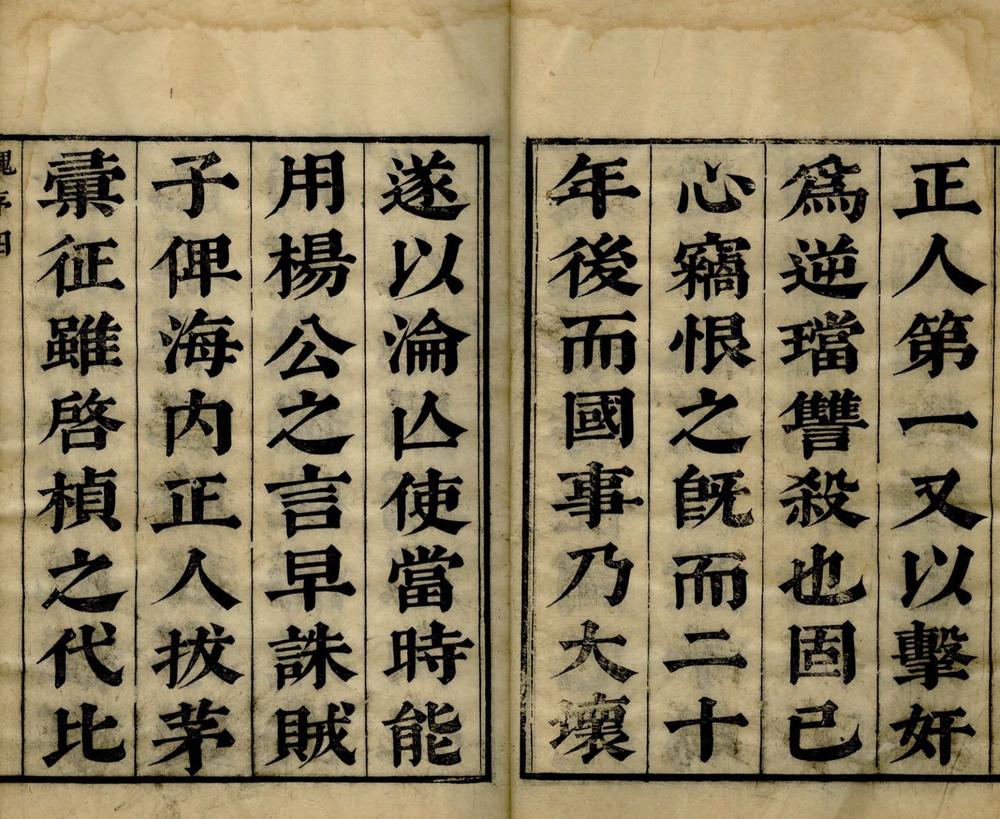 正人第一又以擊奸
爲逆璫讐殺也固已
心竊恨之旣而二十
年後而國事乃大壞
遂以淪亾使當時能
用楊公之言早誅賊
子俾海内正人拔茅
彙征雖啓楨之代比
序四